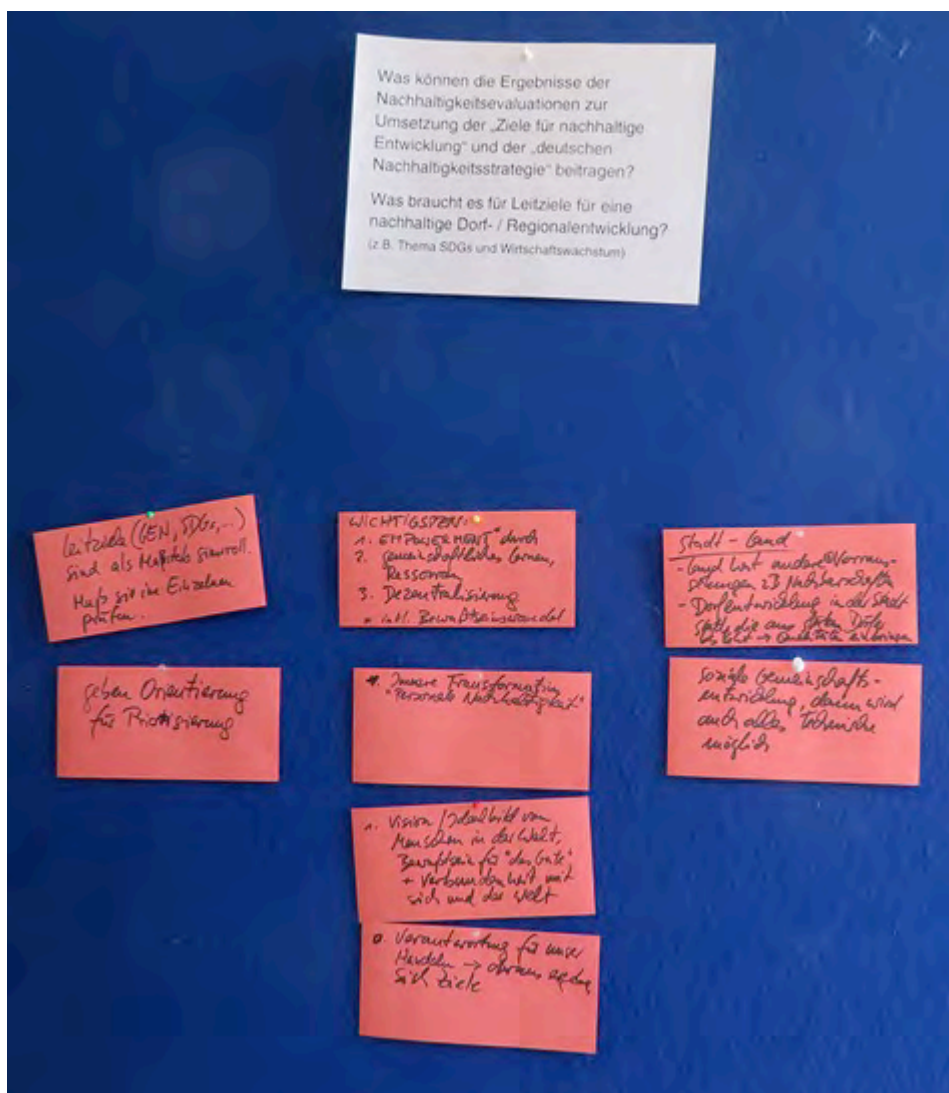 Was können die Ergebnisse der
Nachhaltigkeitsevaluationen zur
Umsetzung der „Ziele für nachhaltige
Entwicklung“ und der „deutschen
Nachhaltigkeitsstrategie“ beitragen?
Was braucht es für Leitziele für eine
nachhaltige Dorf- / Regionalentwicklung?
(z.B. Thema SDGs und Wirtschaftswachstum)
Leitziele (GEN, SDGs, ...)
sind als Maßstab sinnvoll.
Muß sie im Einzelnen
prüfen.
geben Orientierung
für Priorisierung
WICHTIGSTEN:
1. EMPOWERMENT" durch
2. Gemeinschaftliches Lernen,
Ressourcen
3. Dezentralisierung
inkl. Bewußtseinswandel
Innere Transformation
"Personale Nachhaltigkeit"
Vision / Idealbild vom
Menschen in der Welt,
Bewußtsein für "das Gute"
+ Verbundenheit mit
sich und der Welt
Verantwortung für unser
Handeln → daraus ergeben
sich Ziele
Stadt - Land
- Land hat andere Vorraus-
setzungen zB Nachbarschaften
- Dorfentwicklung in der Stadt
die aus Dörfer
→ Qualitäten einbringen
soziale Gemeinschafts-
entwicklung, dann wird
auch alles Technische
möglich